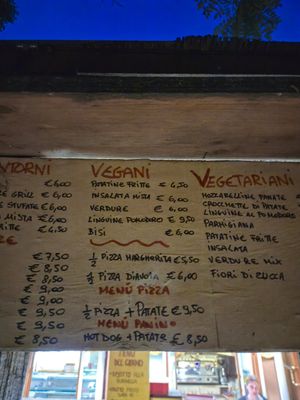 NTORNI
€6,00
RE GRILL €6,00
E STUFATE €6,00
A MISTA €6,00
RITTE €4,50
RE
€7,50
€8,50
€8,50
€9,00
€9,00
€9,50
€9,50
€8,50
VEGANI
PATATINE FRITTE €4,50
INSALATA MISTA €6,00
VERDURE €6,00
LINGUINE POMODORO €9,50
BISI €6,00
½ PIZZA MARGHERITA €5,50
½ PIZZA DIAVOLA €6,00
MENÙ PIZZA
½ PIZZA + PATATE €9,50
MENÙ PANINO
HOT DOG + PATATE €8,50
VEGETARIANI
MOZZARELLINE PANATE
CROCCHETTE DI PATATE
LINGUINE AL POMODORO
PARMIGIANA
PATATINE FRITTE
INSALATA
VERDURE MIX
FIORI DI ZUCCA
MENU
DEL GIORNO